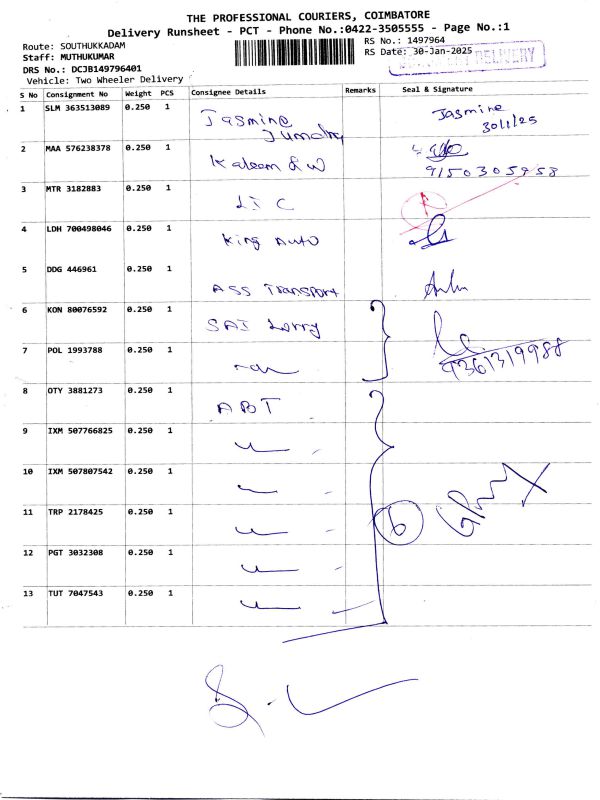 THE PROFESSIONAL COURIERS, COIMBATORE
Delivery Runsheet - PCT - Phone No.:0422-3505555 - Page No.:1
Route: SOUTHUKKADAM
RS No.: 1497964
Staff: MUTHUKUMAR
RS Date: 30-Jan-2025
DELIVERY
DRS No.: DCJB149796401
Vehicle: Two Wheeler Delivery
S No Consignment No Weight PCS Consignee Details Remarks Seal & Signature
1 SLM 363513089 0.250 1 Jasmine Jasmine
30/1/25
2 MAA 576238378 0.250 1 Kaleem & W
9150305958
3 MTR 3182883 0.250 1 LIC
4 LDH 700498046 0.250 1 King Auto
5 DDG 446961 0.250 1 ASS Transport
6 KON 80076592 0.250 1 SAI Lorry
7 POL 1993788 0.250 1 9361319988
8 OTY 3881273 0.250 1 ABT
9 IXM 507766825 0.250 1
10 IXM 507807542 0.250 1
11 TRP 2178425 0.250 1 6
12 PGT 3032308 0.250 1
13 TUT 7047543 0.250 1